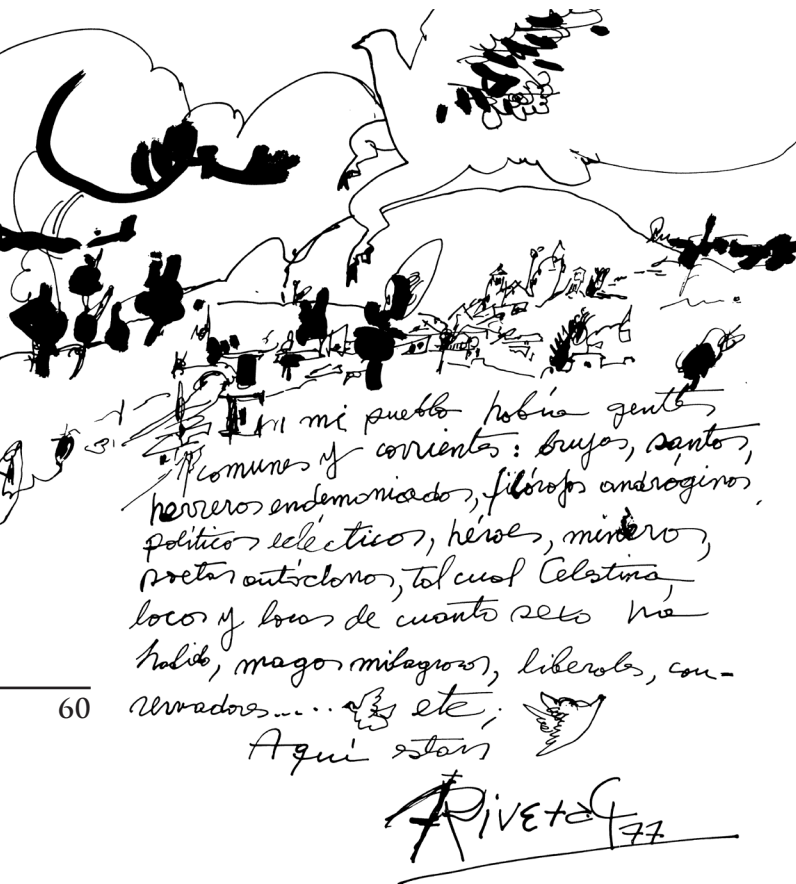 En mi pueblo había gentes
comunes y corrientes: brujas, santos,
herreros endemoniados, filósofos andróginos,
políticos eclécticos, héroes, mineros,
poetas autóctonos, tal cual Celestina
locos y locas de cuanto sexo ha
habido, magos milagrosos, liberales, con-
servadores..... etc,
Aquí están
60
ARivera G 77